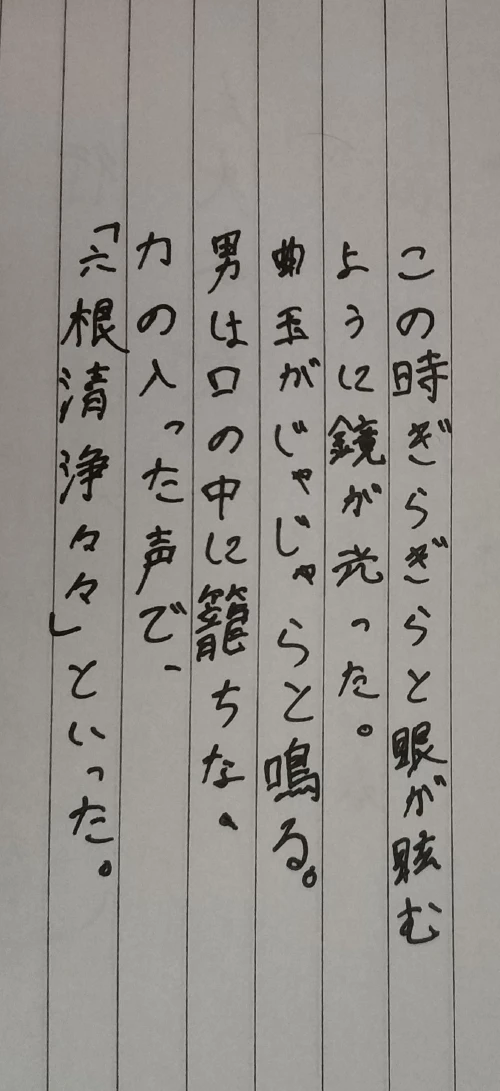 この時ぎらぎらと眼が眩む
ように鏡が光った。
曲玉がじゃじゃらと鳴る。
男は口の中に籠ちな、
力の入った声で、
「六根清浄々々」といった。